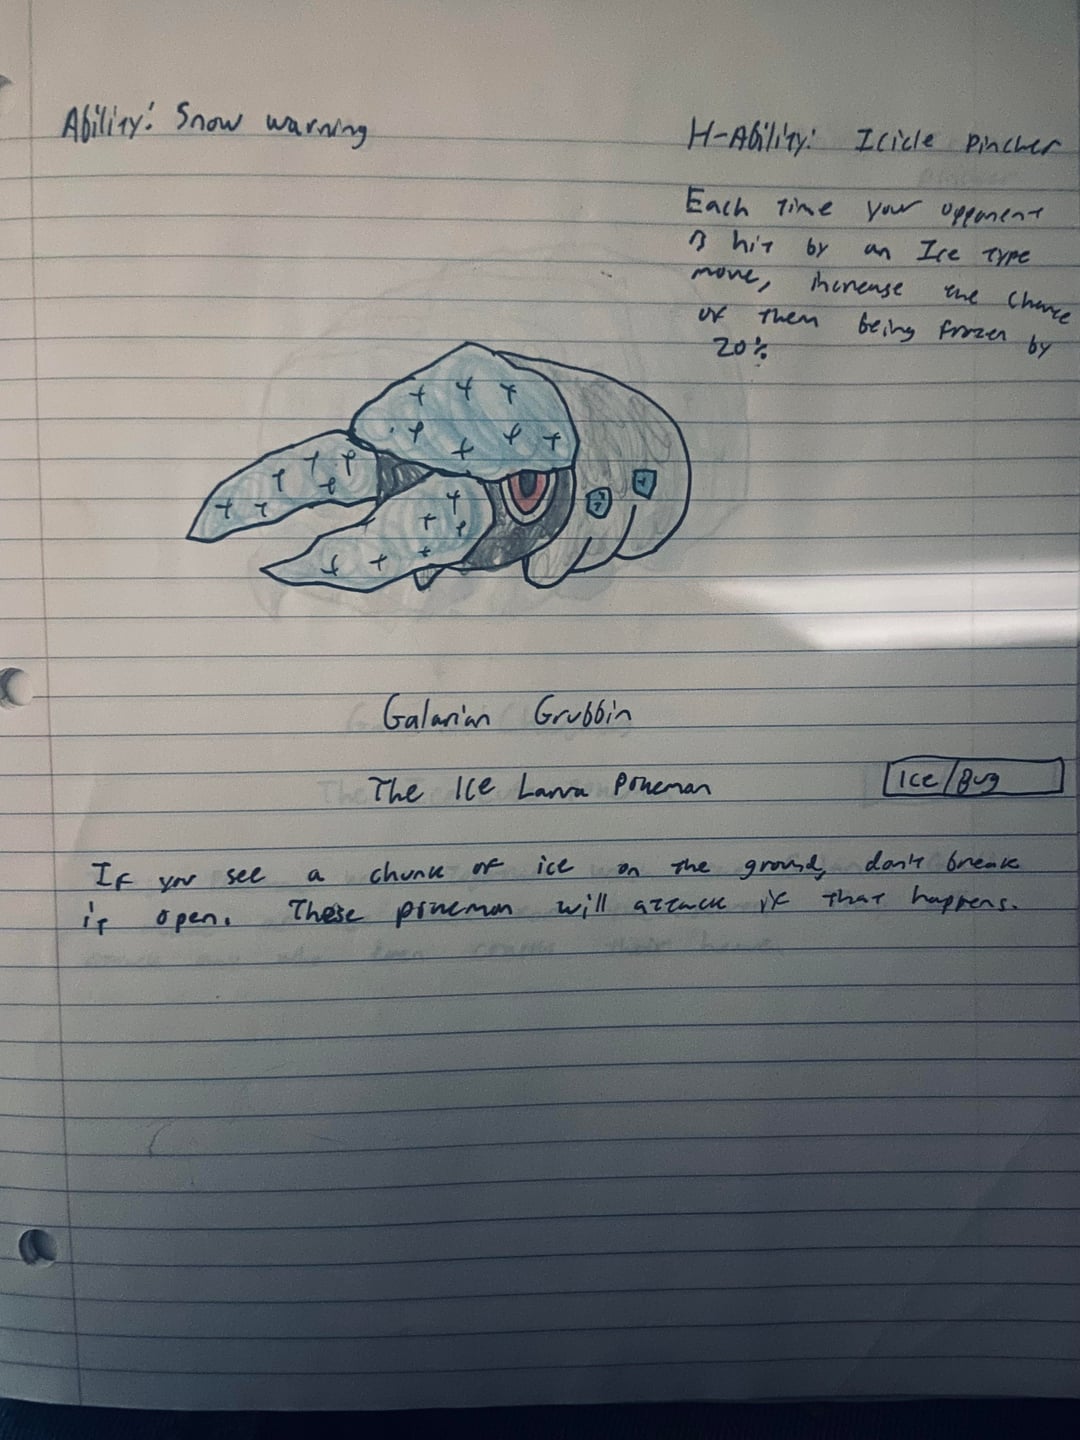 Ability: Snow warning
H-Ability: Icicle Pincher
Each time your opponent
is hit by an Ice type
move, increase the chance
of them being frozen by
20%
Galarian Grubbin
The Ice Larva Pokemon
Ice/Bug
If you see a chunk of ice on the ground, don't break
it open. These pokemon will attack if that happens.